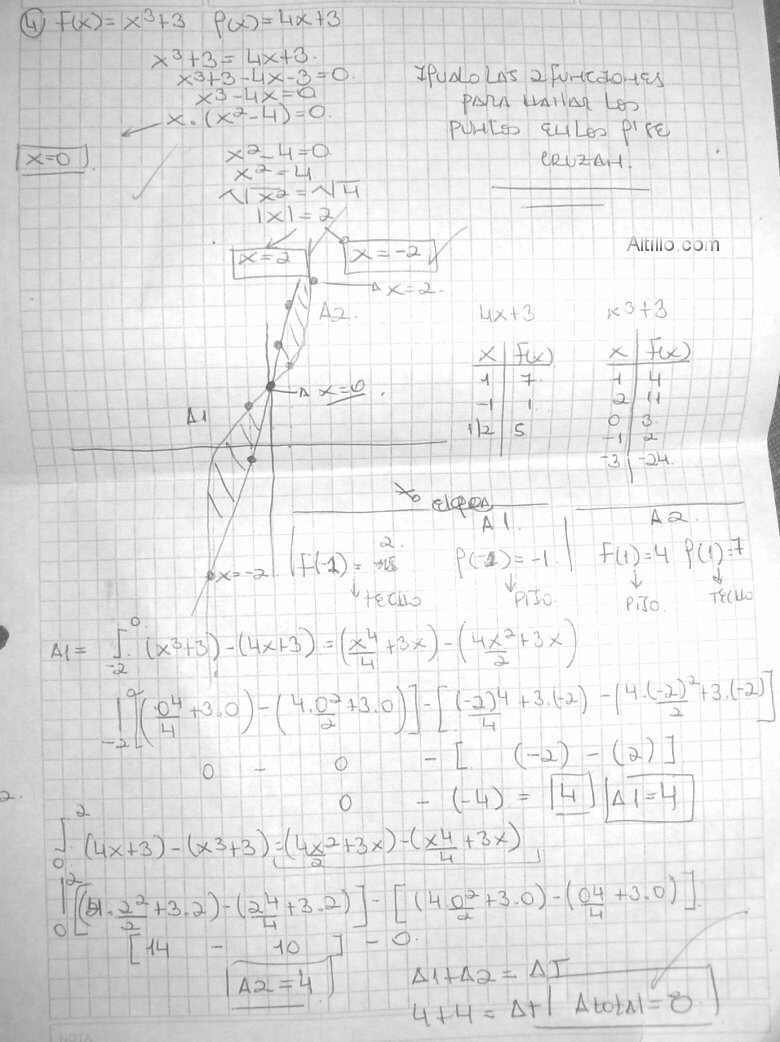 ④ F(x)=x³+3 P(x)=4x+3
x³+3=4x+3.
x³+3-4x-3=0.
x³-4x=0
x.(x²-4)=0.
x=0
x²-4=0
x²=4
√x²=√4
|x|=2
x=2 x=-2
IGUALO LAS 2 FUNCIONES
PARA HALLAR LOS
PUNTOS EN LOS Q' SE
CRUZAN.
Altillo.com
x=2.
A2.
x=0
A1
x=-2
4x+3 x³+3
x F(x) x F(x)
1 7 1 4
-1 1 2 11
1/2 5 0 3
-1 2
-3 -24
A1. A2.
F(-1)= 2 P(-1)=-1 F(1)=4 P(1)=7
TECHO PISO. PISO. TECHO
A1= ∫₋₂⁰ (x³+3)-(4x+3)=(x⁴/4+3x)-(4x²/2+3x)
|₋₂⁰ [(0⁴/4+3.0)-(4.0²/2+3.0)]-[(-2)⁴/4+3.(-2)-(4.(-2)²/2+3.(-2)]
0 - 0 -[ (-2)-(2)]
0 -(-4)= 4 A1=4
2.
∫₀² (4x+3)-(x³+3)=(4x²/2+3x)-(x⁴/4+3x)
|₀² [(4.2²/2+3.2)-(2⁴/4+3.2)]-[(4.0²/2+3.0)-(0⁴/4+3.0)].
[14 - 10] -0.
A2=4
A1+A2=AT
4+4=At Atotal=8